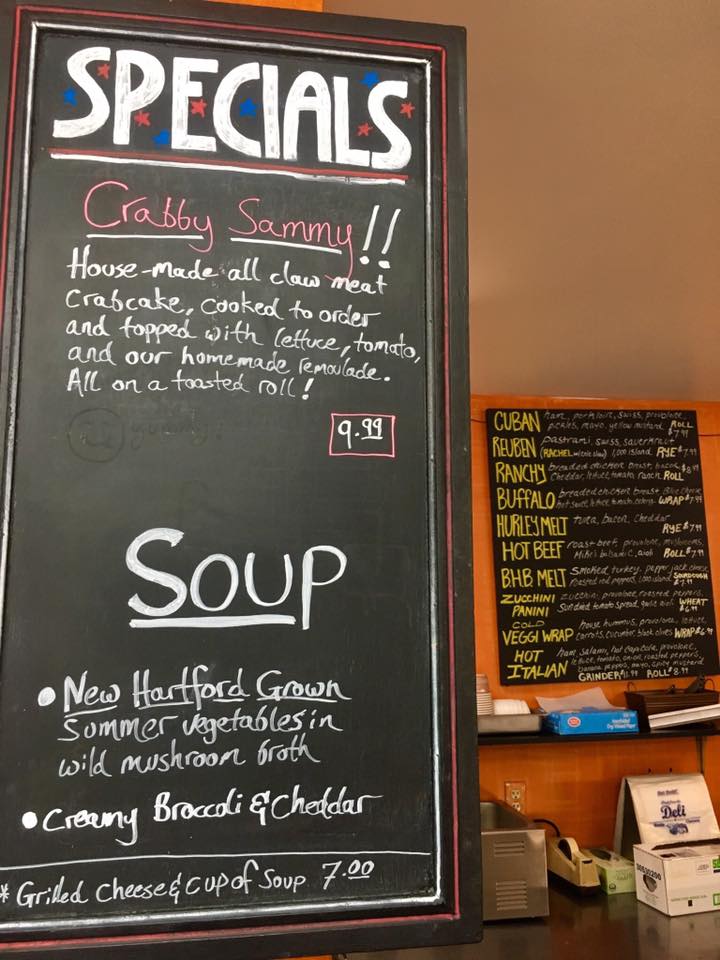 SPECIALS
Crabby Sammy!!
House-made all claw meat
Crabcake, cooked to order
and topped with lettuce, tomato,
and our homemade remoulade.
All on a toasted roll!
9.99
SOUP
• New Hartford Grown
Summer vegetables in
wild mushroom broth
• Creamy Broccoli & Cheddar
* Grilled Cheese & cup of Soup 7.00
CUBAN ham, pork loin, swiss, provolone,
pickles, mayo, yellow mustard ROLL $7.99
REUBEN pastrami, swiss, sauerkraut
(RACHEL w/cole slaw) 1,000 island RYE $7.99
RANCHY breaded chicken breast, bacon,
Cheddar, lettuce, tomato, ranch ROLL
BUFFALO breaded chicken breast, Blue cheese
hot sauce, lettuce, tomato, celery WRAP $7.99
HURLEY MELT tuna, bacon, cheddar
RYE $7.99
HOT BEEF roast beef, provolone, mushrooms,
Mike's balsamic, aioli ROLL $7.99
BHB MELT smoked turkey, pepper jack cheese,
roasted red peppers, 1,000 island SOURDOUGH
$7.99
ZUCCHINI zucchini, provolone, roasted peppers,
PANINI Sundried tomato spread, garlic aioli WHEAT
$6.99
COLD house hummus, provolone, lettuce
VEGGI WRAP carrots, cucumber, black olives WRAP $6.99
HOT ham, salami, hot capicola, provolone,
ITALIAN lettuce, tomato, onion, roasted peppers,
banana peppers, mayo, spicy mustard
GRINDER $11.99 ROLL $8.99
Deli